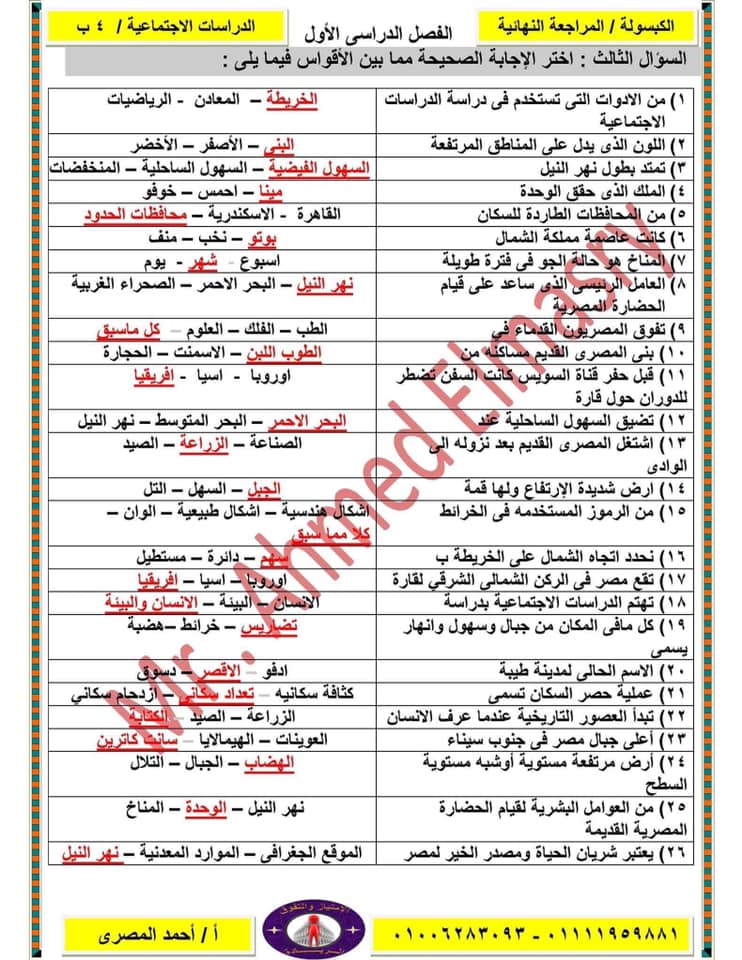 الكبسولة / المراجعة النهائية
الفصل الدراسى الأول
الدراسات الاجتماعية / ٤ ب
السؤال الثالث : اختر الإجابة الصحيحة مما بين الأقواس فيما يلى :
١) من الادوات التى تستخدم فى دراسة الدراسات الاجتماعية
الخريطة – المعادن - الرياضيات
٢) اللون الذى يدل على المناطق المرتفعة
البنى – الأصفر – الأخضر
٣) تمتد بطول نهر النيل
السهول الفيضية – السهول الساحلية – المنخفضات
٤) الملك الذى حقق الوحدة
مينا – احمس – خوفو
٥) من المحافظات الطاردة للسكان
القاهرة - الاسكندرية – محافظات الحدود
٦) كانت عاصمة مملكة الشمال
بوتو – نخب – منف
٧) المناخ هو حالة الجو فى فترة طويلة
اسبوع - شهر - يوم
٨) العامل الرئيسى الذى ساعد على قيام الحضارة المصرية
نهر النيل – البحر الاحمر – الصحراء الغربية
٩) تفوق المصريون القدماء في
الطب – الفلك – العلوم – كل ماسبق
١٠) بنى المصرى القديم مساكنه من
الطوب اللبن – الاسمنت – الحجارة
١١) قبل حفر قناة السويس كانت السفن تضطر للدوران حول قارة
اوروبا - اسيا - افريقيا
١٢) تضيق السهول الساحلية عند
البحر الاحمر – البحر المتوسط – نهر النيل
١٣) اشتغل المصرى القديم بعد نزوله الى الوادى
الصناعة – الزراعة – الصيد
١٤) ارض شديدة الإرتفاع ولها قمة
الجبل – السهل – التل
١٥) من الرموز المستخدمه فى الخرائط
اشكال هندسية – اشكال طبيعية – الوان –
كلا مما سبق
١٦) نحدد اتجاه الشمال على الخريطة ب
سهم – دائرة – مستطيل
١٧) تقع مصر فى الركن الشمالى الشرقي لقارة
اوروبا – اسيا – افريقيا
١٨) تهتم الدراسات الاجتماعية بدراسة
الانسان – البيئة – الانسان والبيئة
١٩) كل مافى المكان من جبال وسهول وانهار يسمى
تضاريس – خرائط –هضبة
٢٠) الاسم الحالى لمدينة طيبة
ادفو – الاقصر – دسوق
٢١) عملية حصر السكان تسمى
كثافة سكانيه – تعداد سكاني – ازدحام سكاني
٢٢) تبدأ العصور التاريخية عندما عرف الانسان
الزراعة – الصيد – الكتابة
٢٣) أعلى جبال مصر فى جنوب سيناء
العوينات – الهيمالايا – سانت كاترين
٢٤) أرض مرتفعة مستوية أوشبه مستوية السطح
الهضاب – الجبال – التلال
٢٥) من العوامل البشرية لقيام الحضارة المصرية القديمة
نهر النيل – الوحدة – المناخ
٢٦) يعتبر شريان الحياة ومصدر الخير لمصر
الموقع الجغرافى – الموارد المعدنية – نهر النيل
Mr. Ahmed Elmasry
٠١١١١٩٥٩٨٨١ - ٠١٠٠٦٢٨٣٠٩٣
الإمتياز والتفوق
أ / أحمد المصرى